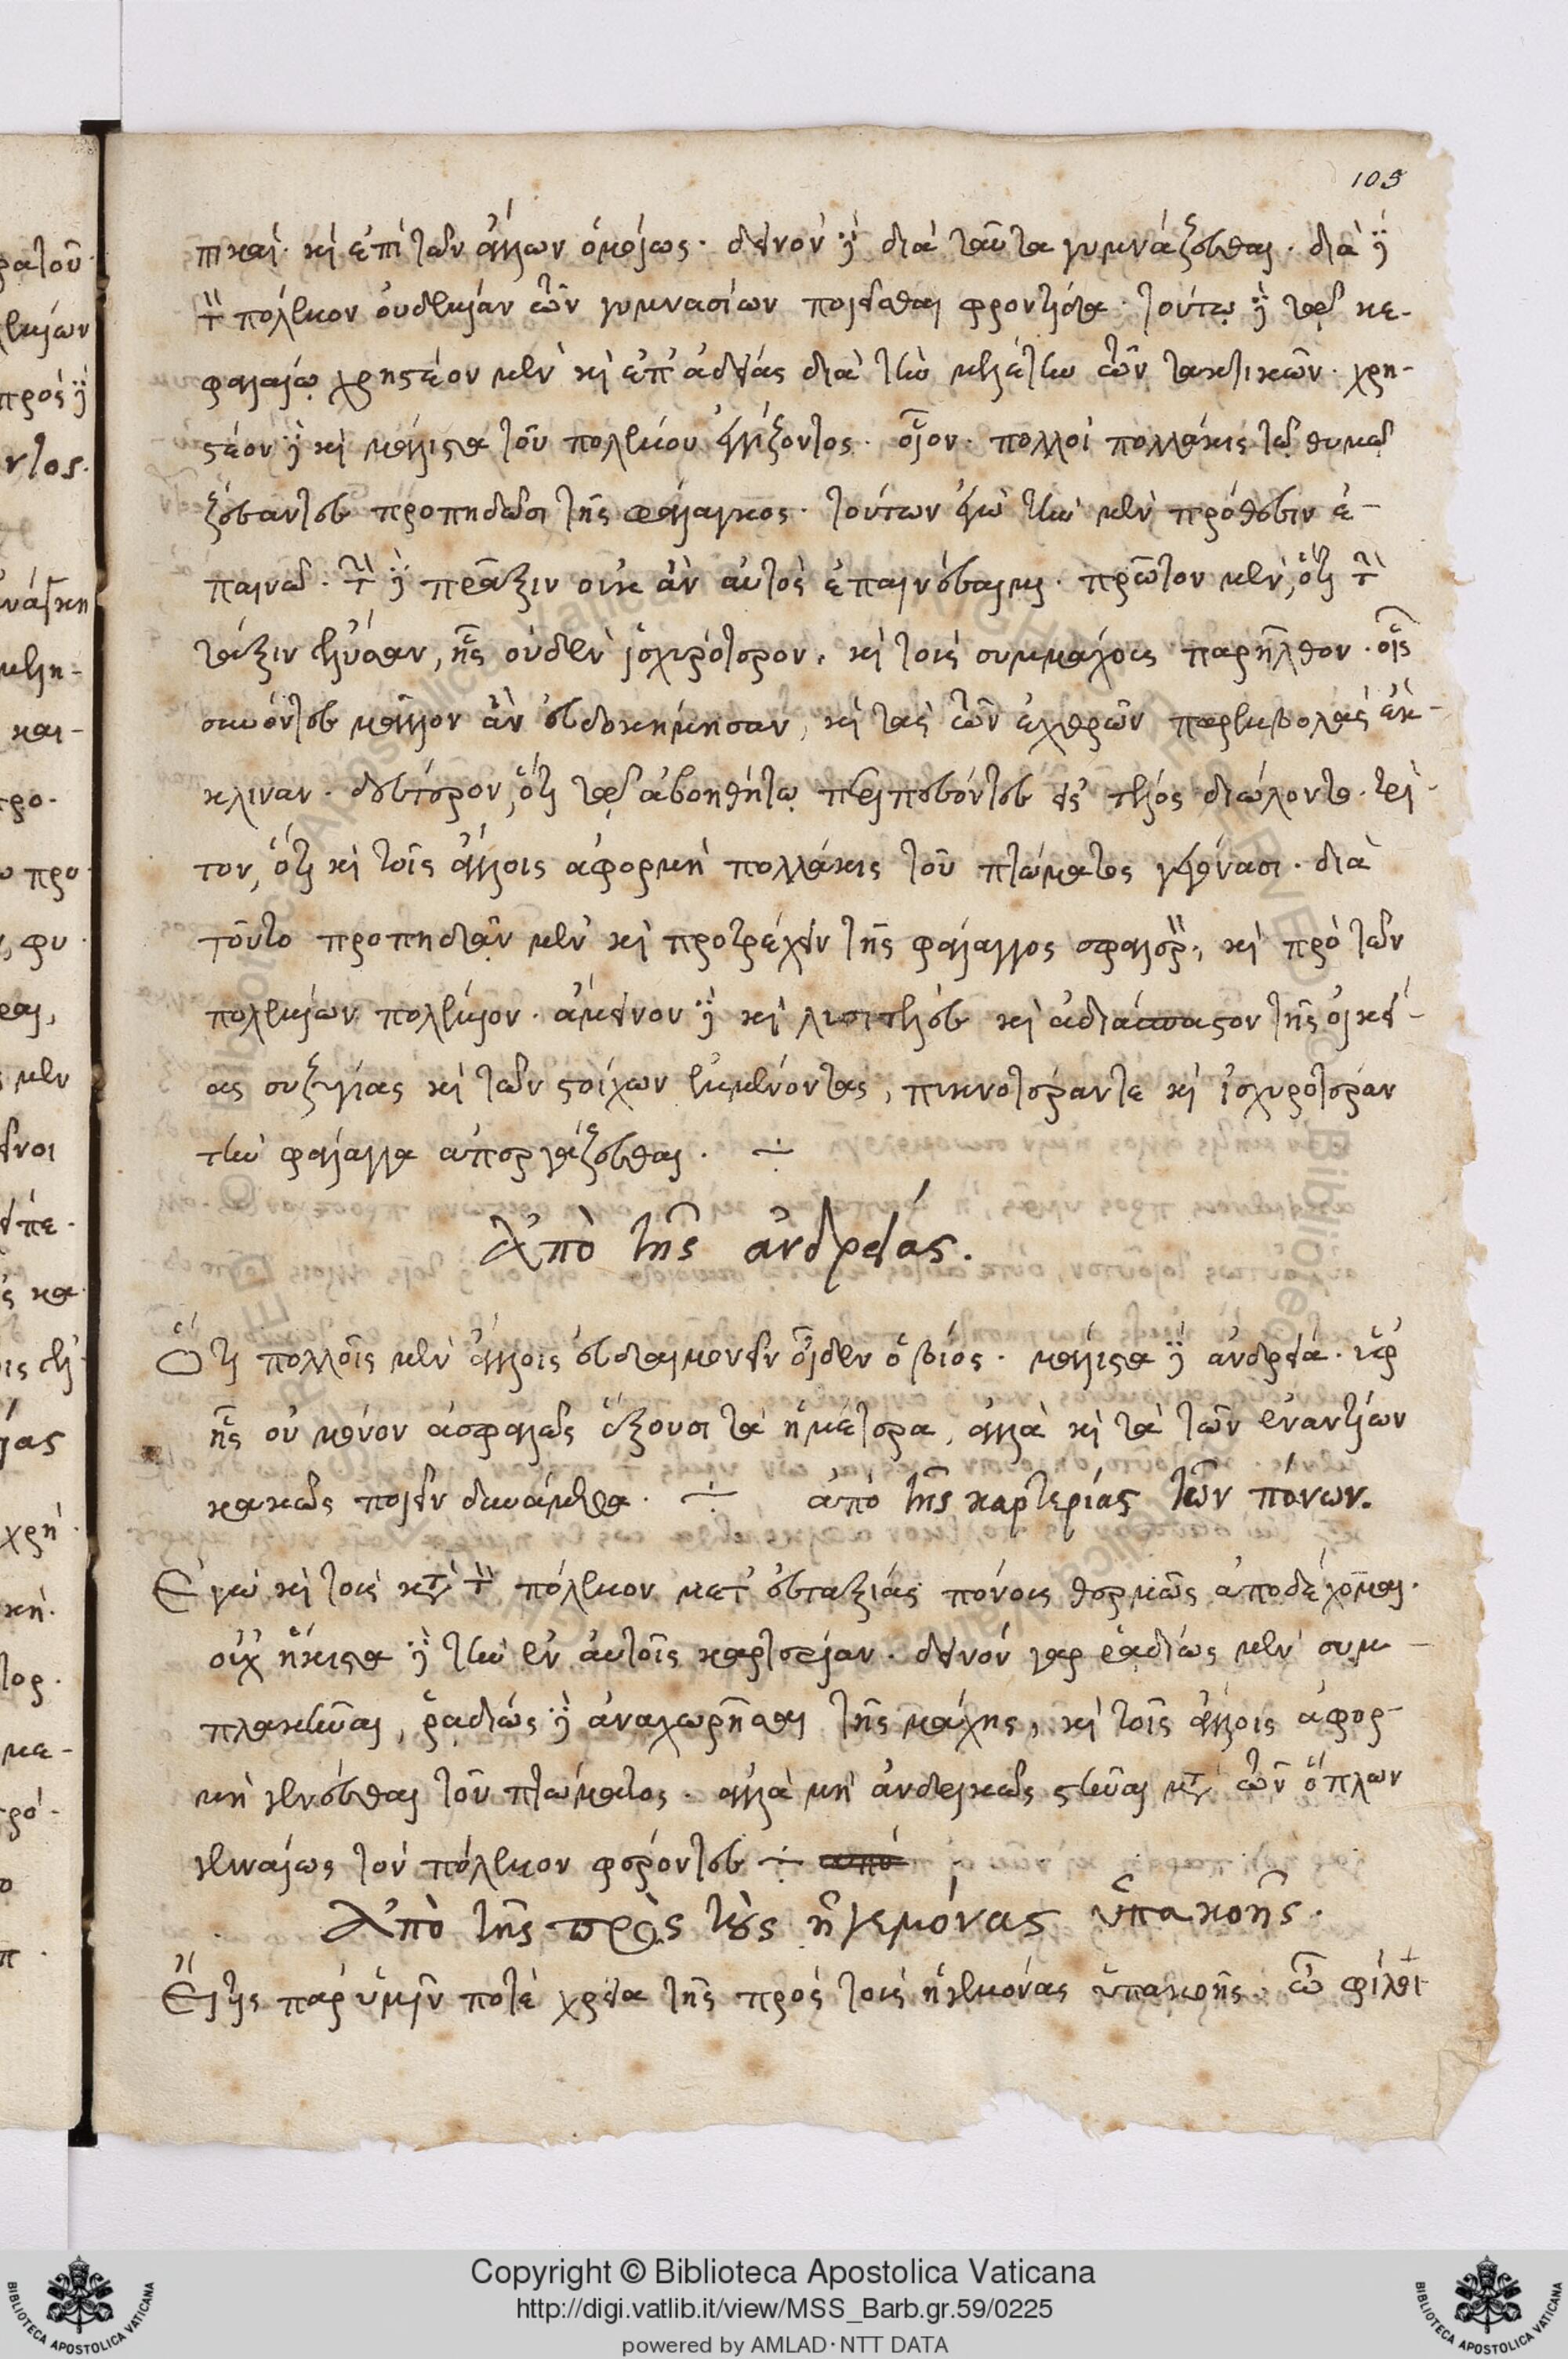 105
πικαί· καὶ ἐπὶ τῶν ἄλλων ὁμοίως· δεινὸν δὲ διὰ ταῦτα γυμνάζεσθαι· διὰ δὲ
τὸν πόλεμον οὐδεμίαν τῶν γυμνασίων ποιεῖσθαι φροντίδα· τούτῳ δὲ τῷ κε-
φαλαίῳ χρηστέον μὲν καὶ ἐπ' ἀδείας διὰ τὴν μελέτην τῶν τακτικῶν· χρη-
στέον δὲ καὶ μάλιστα τοῦ πολέμου ἐγγίζοντος· οἷον· πολλοὶ πολλάκις τῷ θυμῷ
ζέσαντες προπηδῶσι τῆς φάλαγγος· τούτων ἐγὼ τὴν μὲν πρόθεσιν ἐ-
παινῶ· τὴν δὲ πρᾶξιν οὐκ ἂν αὐτὸς ἐπαινέσαιμι· πρῶτον μὲν, ὅτι τὴν
τάξιν ἔλυσαν, ἧς οὐδὲν ἰσχυρότερον, καὶ τοὺς συμμάχους παρῆλθον· οἷς
συνόντες μᾶλλον ἂν εὐδοκήμησαν, καὶ τὰς τῶν ἐχθρῶν παρεμβολὰς ἐκ-
κλιναν· δεύτερον, ὅτι τῷ ἀβοηθήτῳ περιπεσόντες εἰς τέλος διώλοντο· τρί-
τον, ὅτι καὶ τοῖς ἄλλοις ἀφορμὴ πολλάκις τοῦ πτώματος γεγόνασι· διὰ
τοῦτο προπηδᾶν μὲν καὶ προτρέχειν τῆς φάλαγγος σφαλερὸν, καὶ πρὸ τῶν
πολεμίων πολέμιον· ἄμεινον δὲ καὶ λυσιτελὲς καὶ ἀδιάσπαστον τῆς οἰκεί-
ας συζυγίας καὶ τῶν στοίχων ἐμμένοντας, πυκνοτέραν τε καὶ ἰσχυροτέραν
τὴν φάλαγγα ἀπεργάζεσθαι· ÷
Ἀπὸ τῆς ἀνδρείας.
Ὅτι πολλοῖς μὲν ἄλλοις εὐδαιμονεῖν οἶδεν ὁ βίος· μάλιστα δὲ ἀνδρείᾳ· παρ'
ἧς οὐ μόνον ἀσφαλῶς ἕξουσι τὰ ἡμέτερα, ἀλλὰ καὶ τὰ τῶν ἐναντίων
κακῶς ποιεῖν δυνάμεθα· ÷ ἀπὸ τῆς καρτερίας τῶν πόνων.
Ἐγὼ καὶ τοὺς κατὰ τὸν πόλεμον μετ' εὐταξίας πόνους θερμῶς ἀποδέχομαι·
οὐχ ἥκιστα δὲ τὴν ἐν αὐτοῖς καρτερίαν· δεινὸν γὰρ ῥᾳδίως μὲν συμ-
πλακῆναι, ῥᾳδίως δὲ ἀναχωρῆσαι τῆς μάχης, καὶ τοῖς ἄλλοις ἀφορ-
μὴ γενέσθαι τοῦ πτώματος· ἀλλὰ μὴ ἀνδρικῶς στῆναι μετὰ τῶν ὅπλων
γενναίως τὸν πόλεμον φέροντες ÷ ἀπὸ
Ἀπὸ τῆς πρὸς τοὺς ἡγεμόνας ὑπακοῆς.
Εἴ τις παρ' ὑμῖν ποτὲ χρεία τῆς πρὸς τοὺς ἡγεμόνας ὑπακοῆς· ὦ φίλοι
Copyright © Biblioteca Apostolica Vaticana
http://digi.vatlib.it/view/MSS_Barb.gr.59/0225
powered by AMLAD·NTT DATA